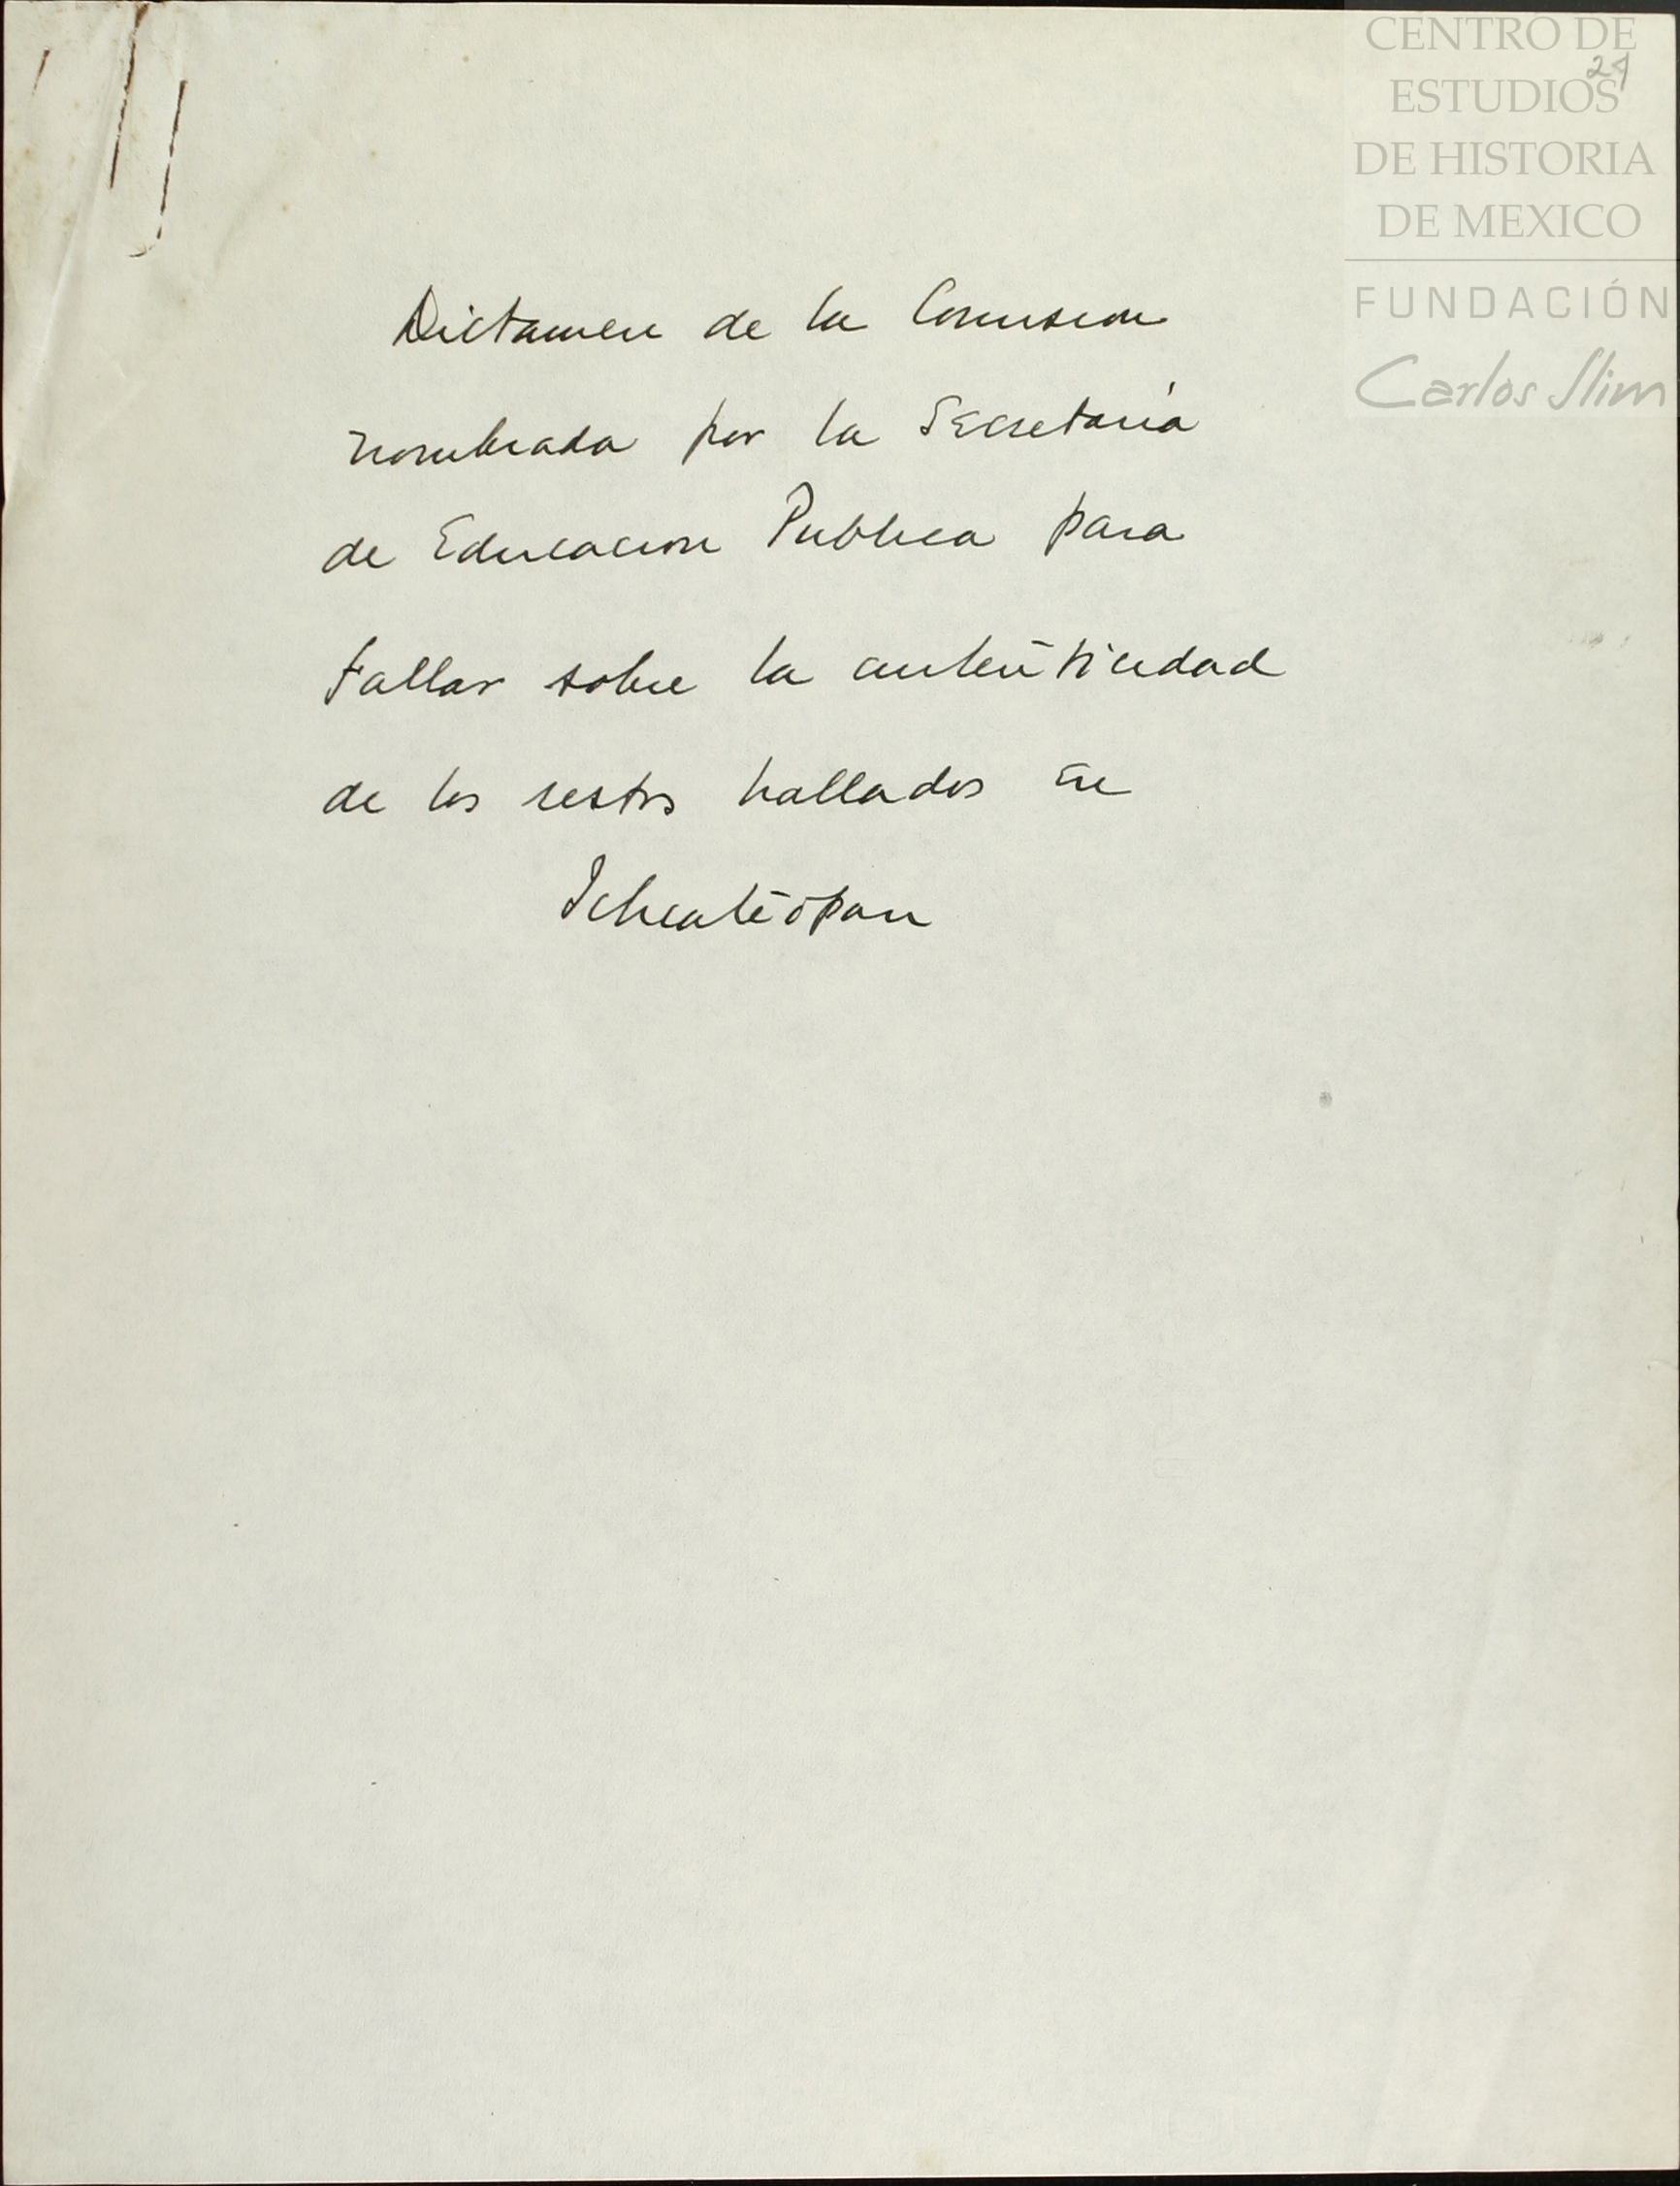 CENTRO DE
ESTUDIOS
DE HISTORIA
DE MEXICO
FUNDACIÓN
Carlos Slim
Dictamen de la Comision
nombrada por la Secretaría
de Educacion Publica para
fallar sobre la autenticidad
de los restos hallados en
Ichcateopan